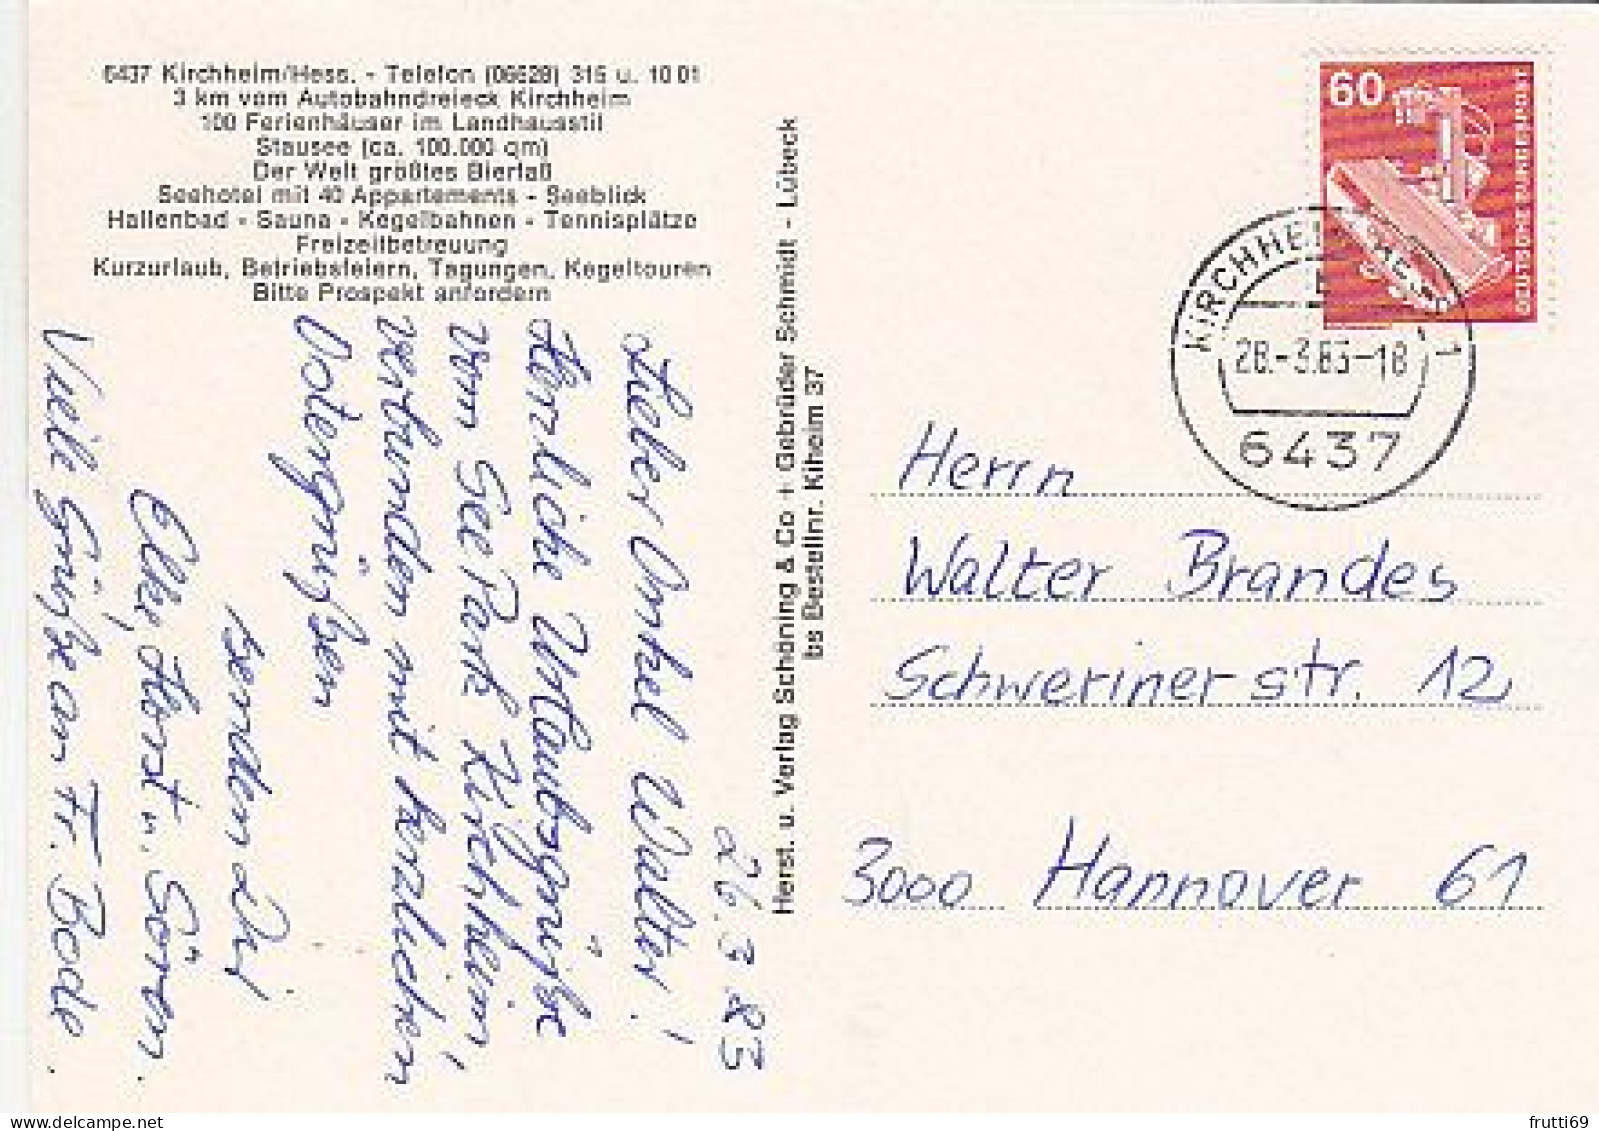 6437 Kirchheim/Hess. - Telefon (06628) 315 u. 10 01
3 km vom Autobahndreieck Kirchheim
100 Ferienhäuser im Landhausstil
Stausee (ca. 100.000 qm)
Der Welt größtes Bierfaß
Seehotel mit 40 Appartements - Seeblick
Hallenbad - Sauna - Kegelbahnen - Tennisplätze
Freizeitbetreuung
Kurzurlaub, Betriebsfeiern, Tagungen, Kegeltouren
Bitte Prospekt anfordern
26.3.83
Lieber Onkel Walter!
Herzliche Urlaubsgrüße
vom See Park Kirchheim,
verbunden mit herzlichen
Ostergrüßen
senden Dir
Elke, Horst u. Sören.
Viele Grüße an Fr. Bode.
Herst. u. Verlag Schöning & Co + Gebrüder Schmidt - Lübeck
bs Bestellnr. Kiheim 37
60
DEUTSCHE BUNDESPOST
KIRCHHEIM, HESS 1
28.-3.83-18
6437
Herrn
Walter Brandes
Schwerinerstr. 12
3000 Hannover 61
frutti69